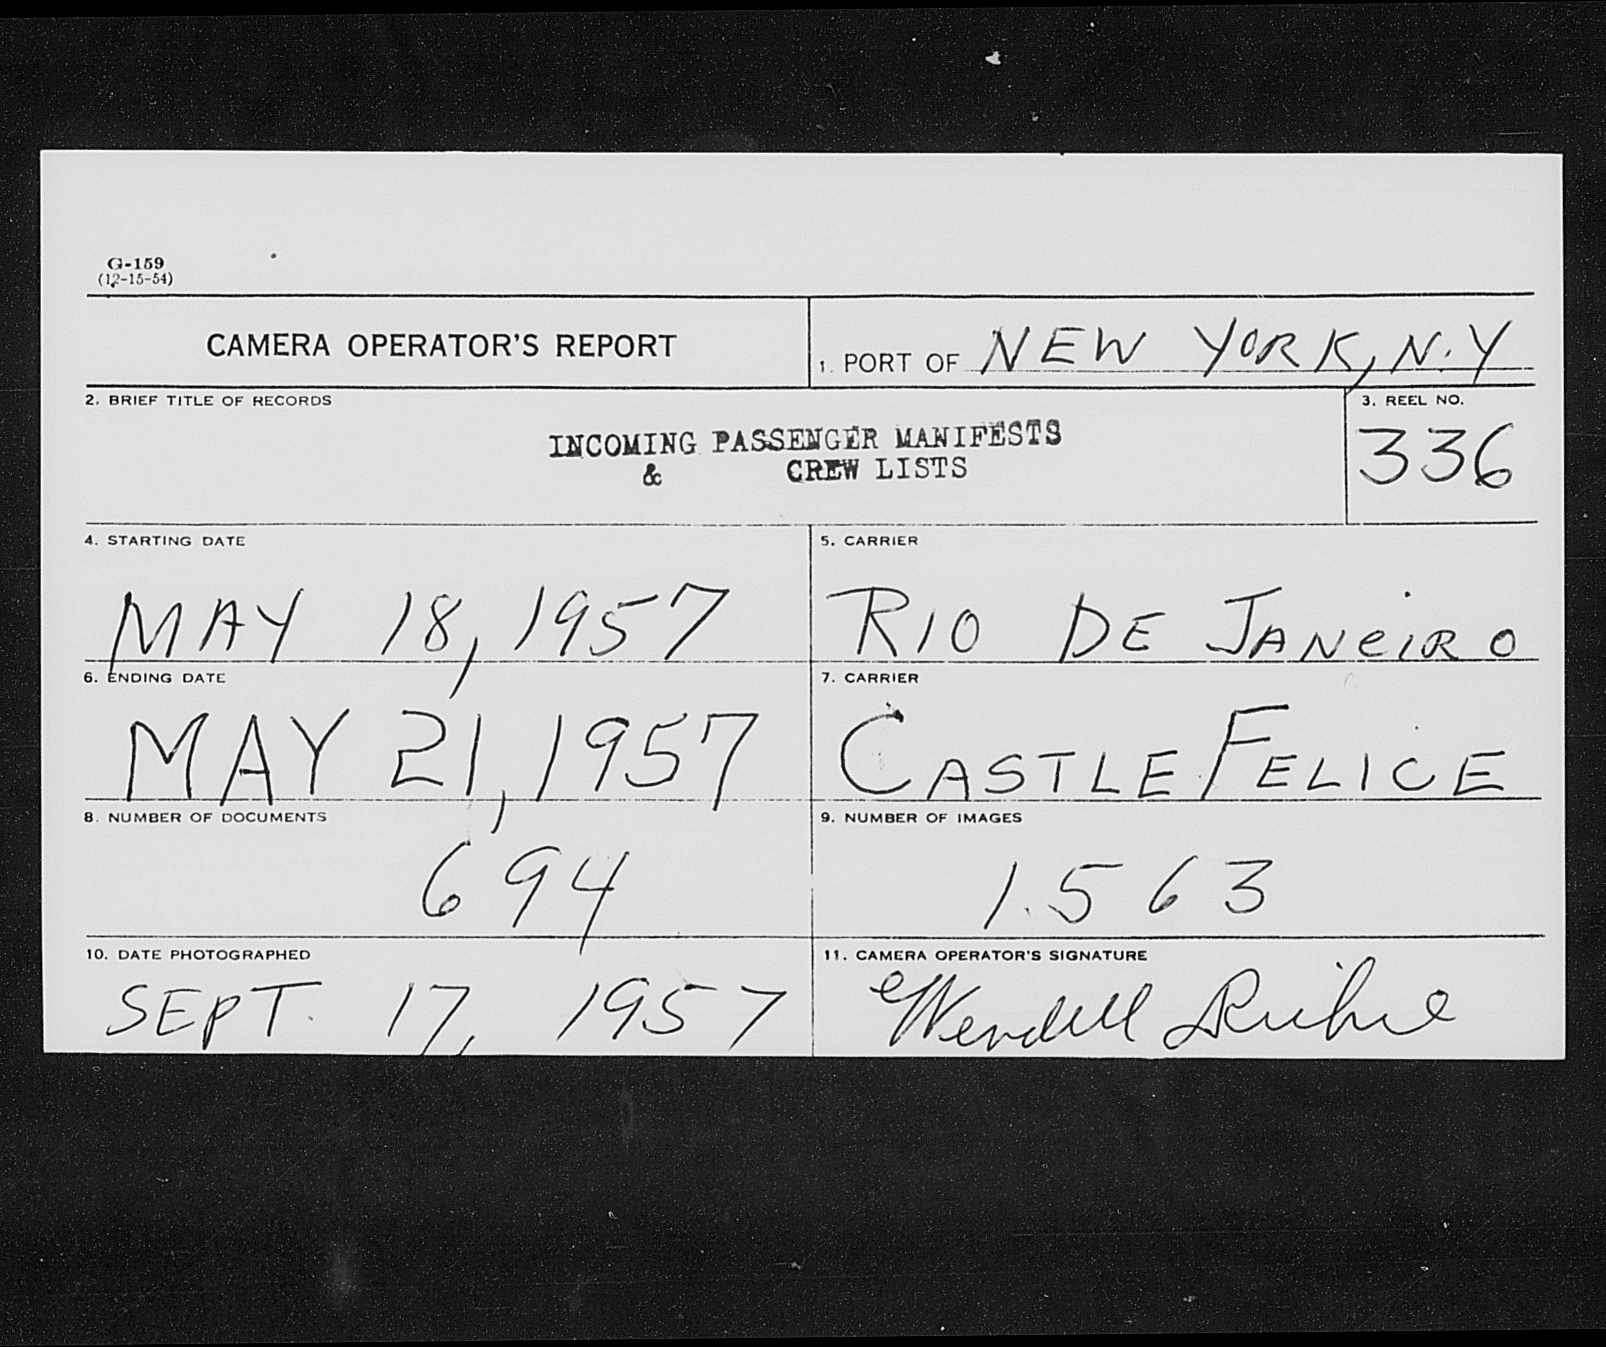 G-159
(12-15-54)
CAMERA OPERATOR'S REPORT
1. PORT OF NEW YORK, N.Y
2. BRIEF TITLE OF RECORDS
INCOMING PASSENGER MANIFESTS
& CREW LISTS
3. REEL NO.
336
4. STARTING DATE
MAY 18, 1957
5. CARRIER
RIO DE JANEIRO
6. ENDING DATE
MAY 21, 1957
7. CARRIER
CASTLE FELICE
8. NUMBER OF DOCUMENTS
694
9. NUMBER OF IMAGES
1.563
10. DATE PHOTOGRAPHED
SEPT. 17, 1957
11. CAMERA OPERATOR'S SIGNATURE
Wendell